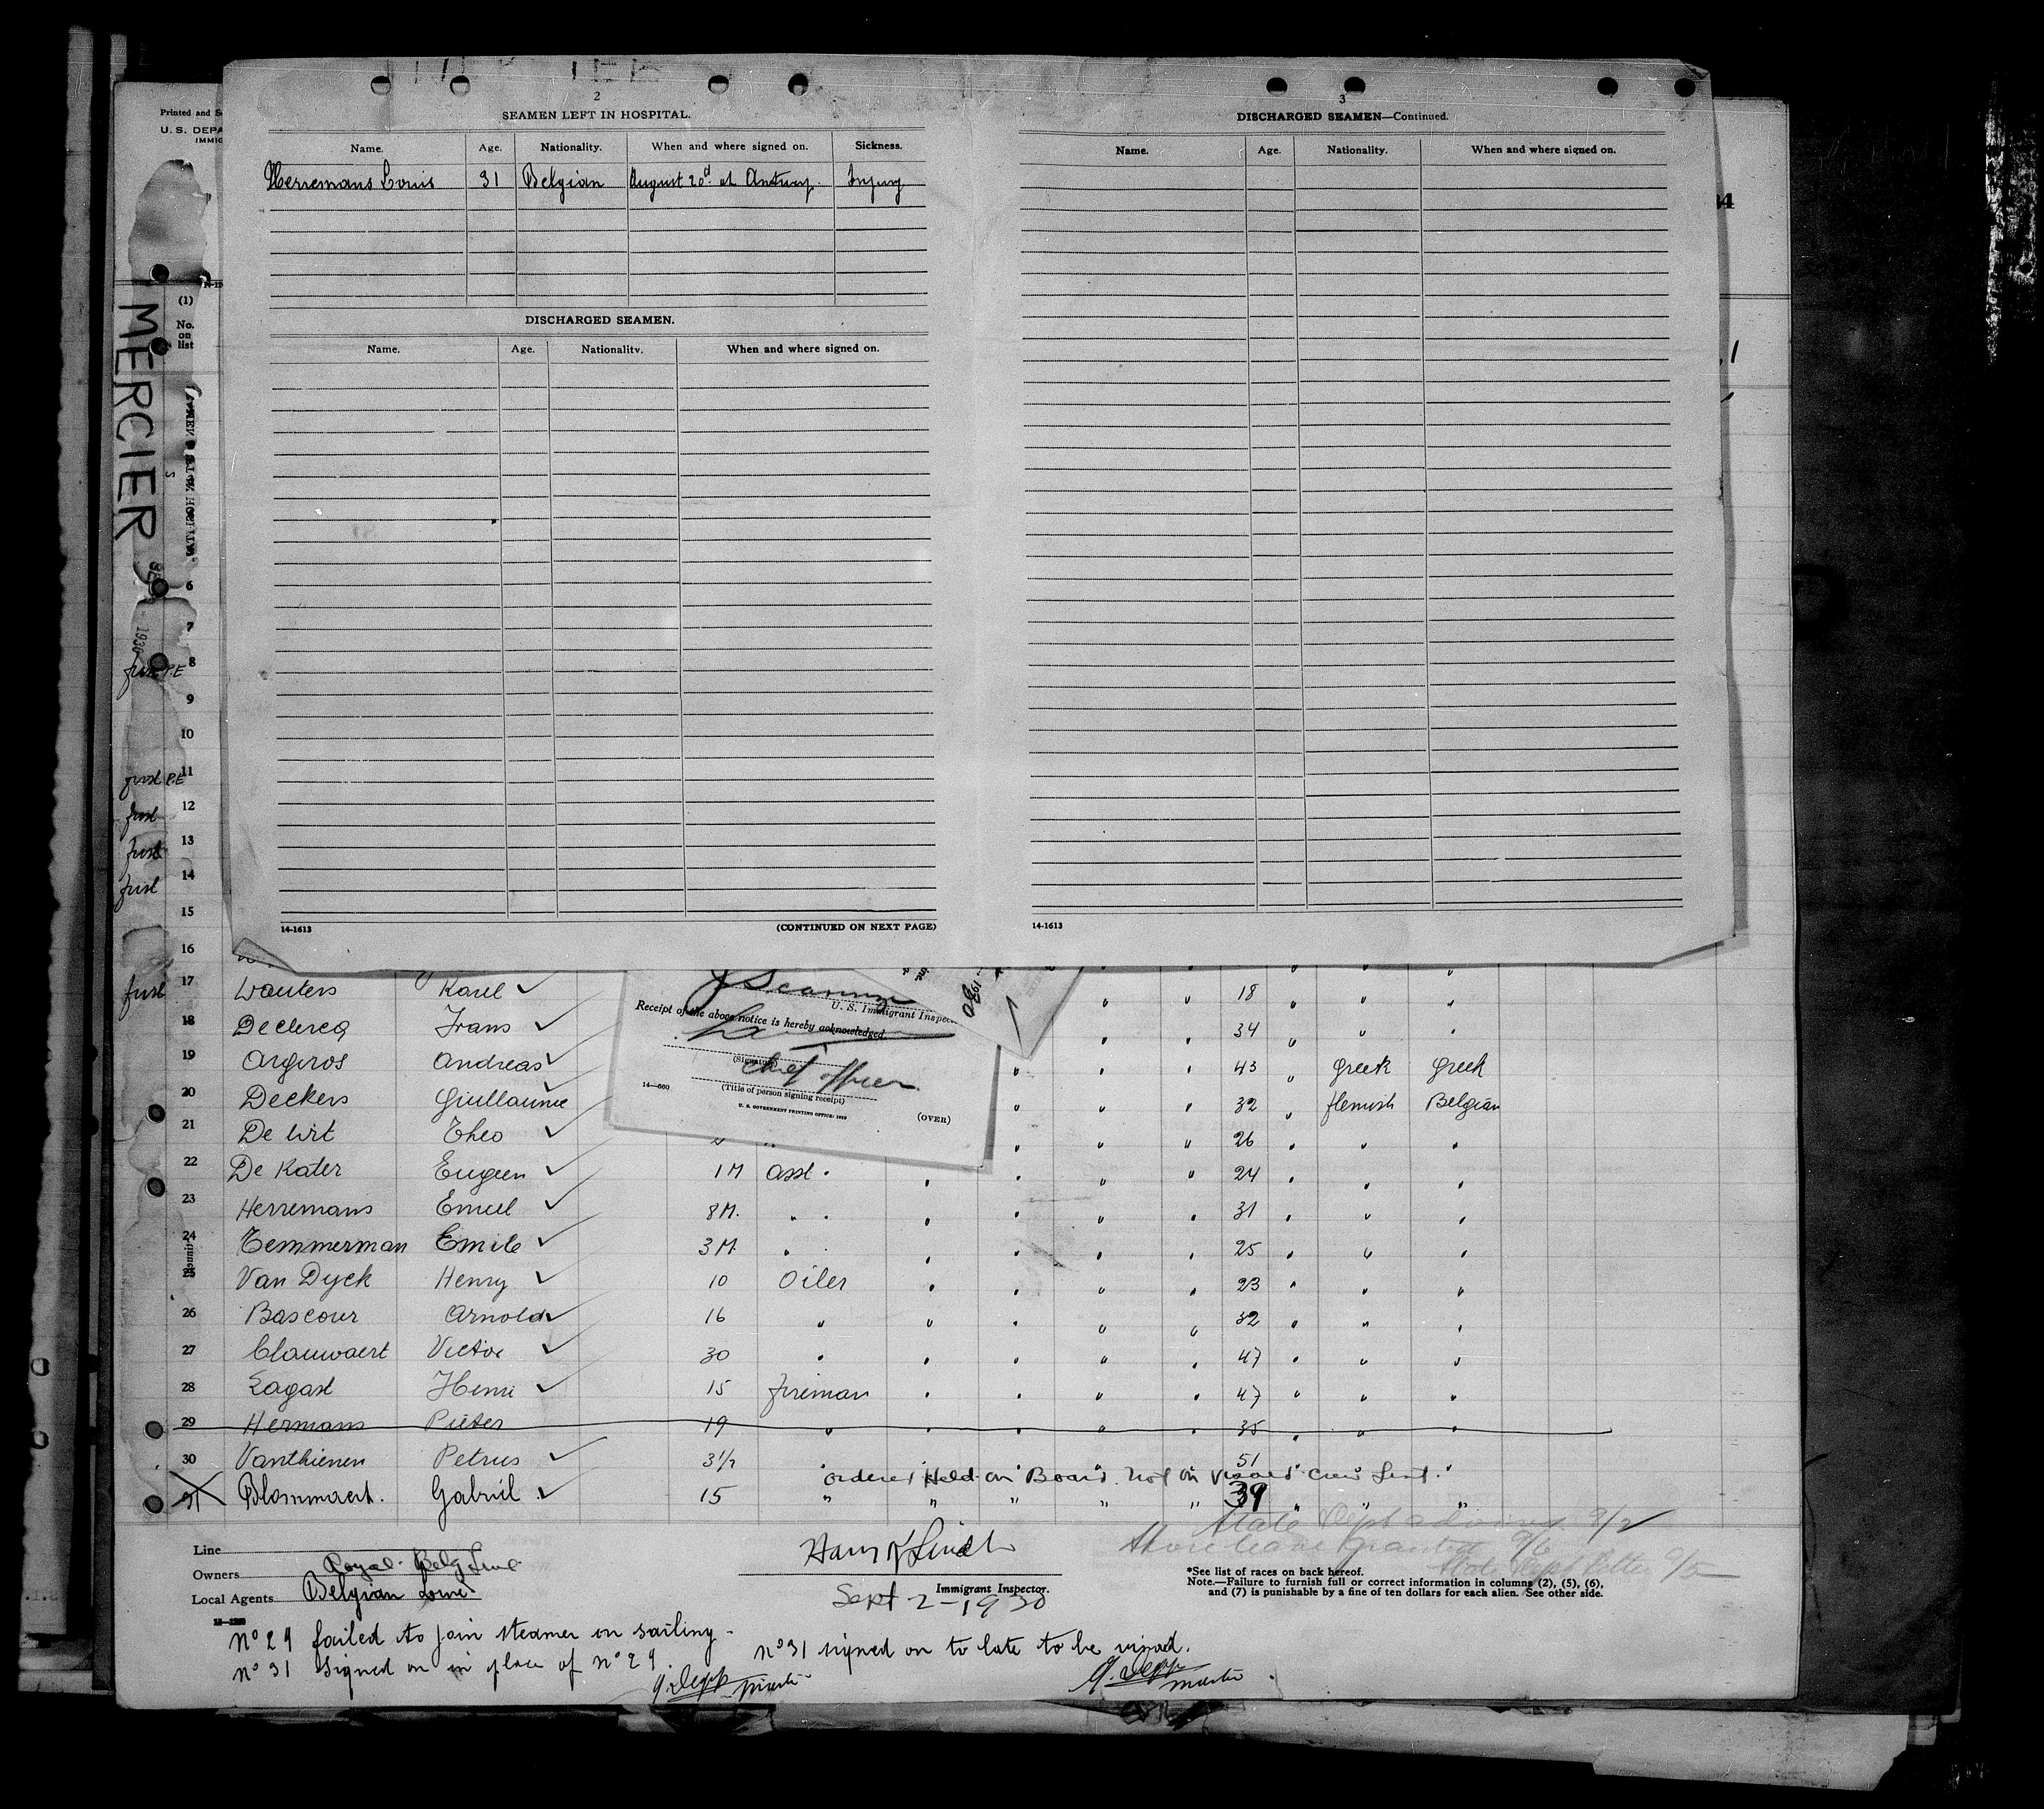 2
SEAMEN LEFT IN HOSPITAL.
Name. Age. Nationality. When and where signed on. Sickness.
Herremans Louis 31 Belgian August 20d at Antwerp. Injury
DISCHARGED SEAMEN.
Name. Age. Nationality. When and where signed on.
14-1613 (CONTINUED ON NEXT PAGE)
3
DISCHARGED SEAMEN—Continued.
Name. Age. Nationality. When and where signed on.
14-1613
Printed and S
U. S. DEPA
IMMIG
(1)
No.
on
list
MERCIER
1930
6
7
8 P.E
9
10
11 P.E
12
13
14
15
16
17 Wauters Karel ✓ " " 18 " " "
18 Declercq Frans ✓ " " 34 " " "
19 Argiros Andreas ✓ " " " 43 " Greek Greek
20 Deckers Guillaume ✓ " " " 32 " flemish Belgian
21 De Wit Theo ✓ " " " 26 " " "
22 De Kater Eugeen ✓ 1M asst. " " " " 24 " " "
23 Herremans Emiel ✓ 8M. " " " " " " 31 " " "
24 Temmerman Emile ✓ 3M " " " " " 25 " " "
25 Van Dyck Henry ✓ 10 Oiler " " " " 23 " " "
26 Bascour Arnold ✓ 16 " " " " " 32 " " "
27 Clauwaert Victor ✓ 30 " " " " " 47 " " "
28 Lagast Henri ✓ 15 fireman " " " " 47 " " "
29 Hermans Pieter 19 " " " " " 35 " " "
30 Vanthienen Petrus ✓ 3½ 51
ordered Held on Board. Not on Visaed Crew List.
31 Blommaert. Gabriel ✓ 15 " " " " " 39 " " "
U. S. Immigrant Inspec
Receipt of the above notice is hereby acknowledged.
(Signature)
Chief officer
(Title of person signing receipt)
14—660
U. S. GOVERNMENT PRINTING OFFICE: 1929
(OVER)
State Dept advises 9/2
Shore leave granted 9/6
State Dept letter 9/5
Line
Owners Royal Belg Line
Local Agents Belgian Line
Immigrant Inspector.
Sept 2-1930
*See list of races on back hereof.
Note.—Failure to furnish full or correct information in columns (2), (5), (6),
and (7) is punishable by a fine of ten dollars for each alien. See other side.
No 29 failed to join steamer on sailing -
No 31 signed on in place of No 29.
master
No 31 signed on to late to be visaed.
master